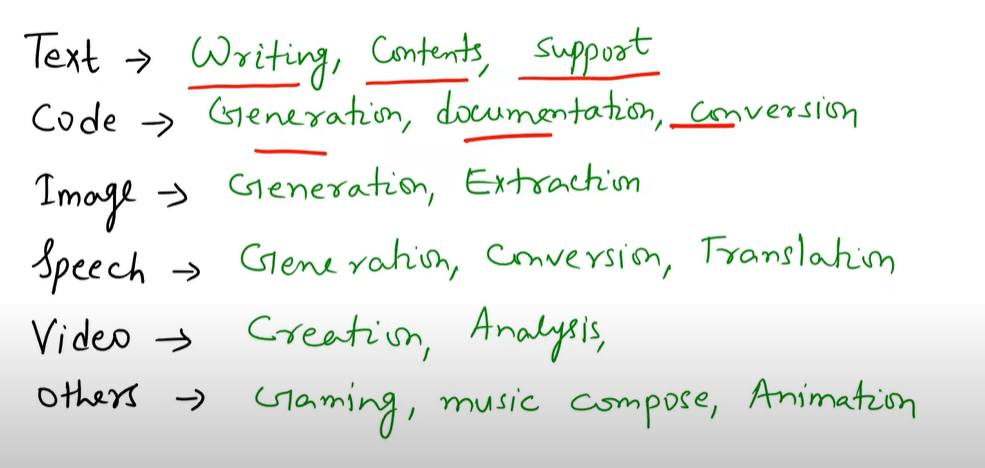 Text → Writing, Contents, Support
Code → Generation, documentation, Conversion
Image → Generation, Extraction
Speech → Generation, Conversion, Translation
Video → Creation, Analysis,
Others → Gaming, music compose, Animation